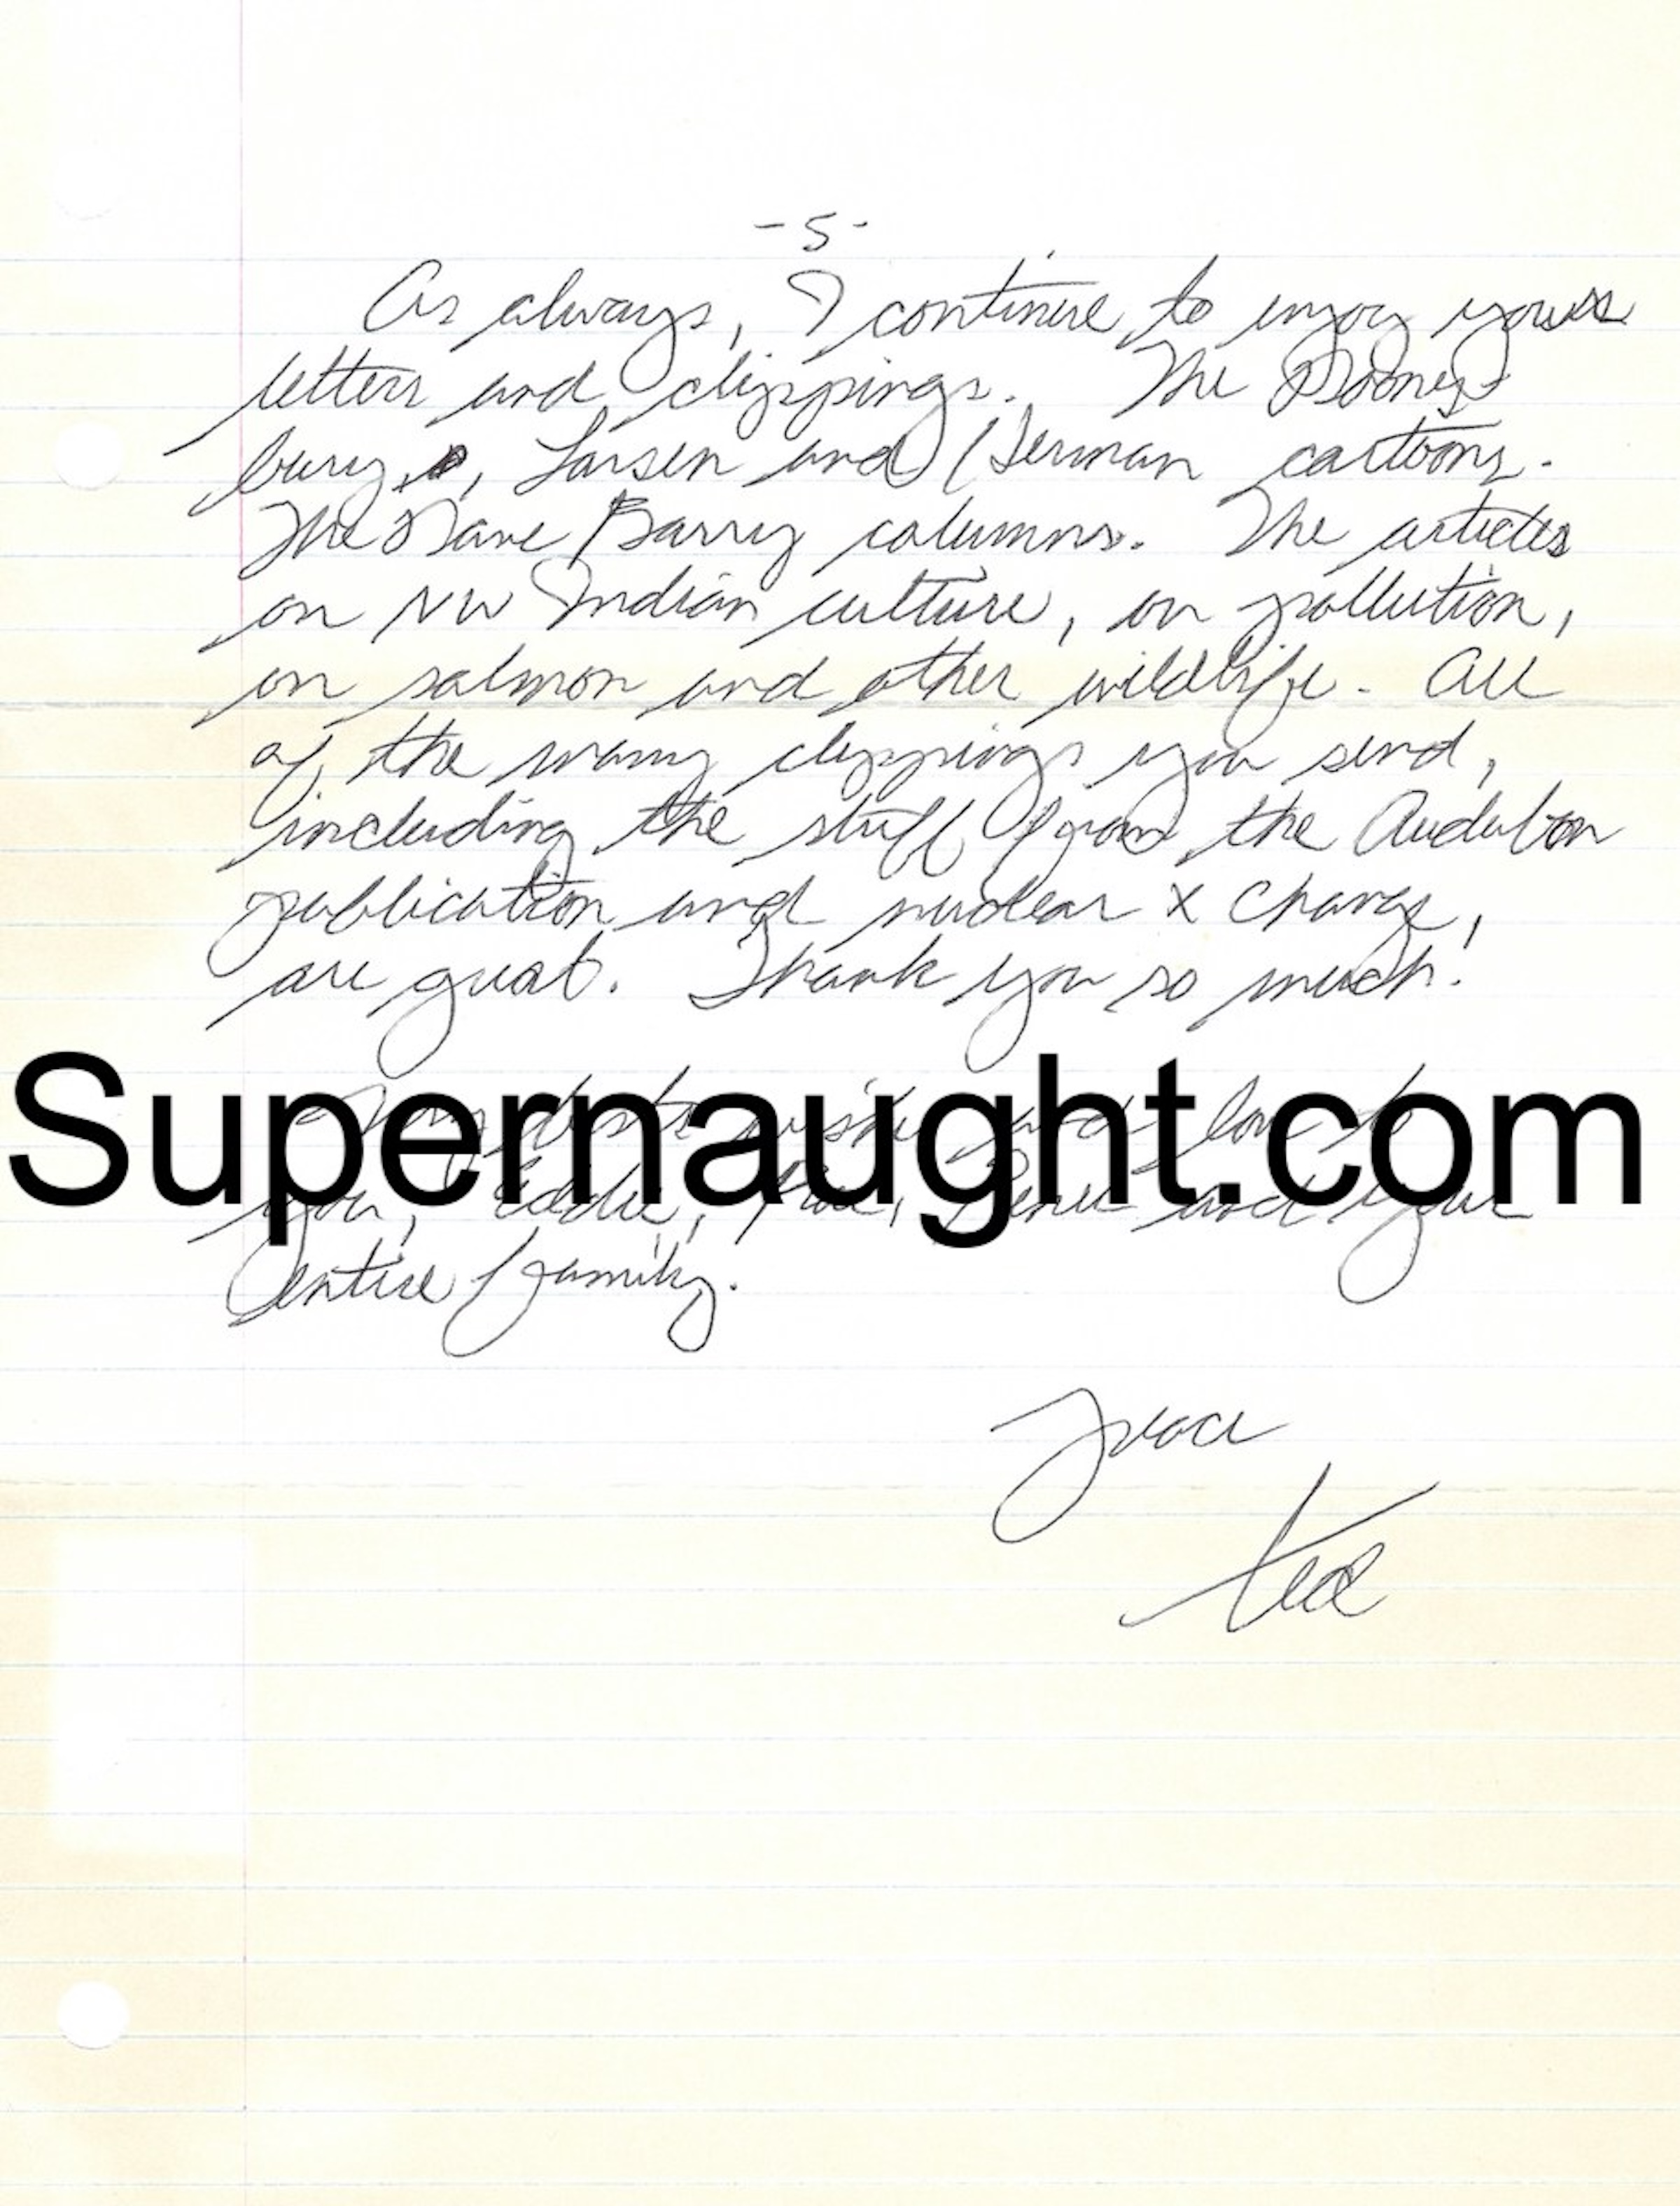 -5-
As always, I continue to enjoy your
letters and clippings. The Doones-
bury, Larsen and Herman cartoons.
The Dave Barry columns. The articles
on NW Indian culture, on pollution,
on salmon and other wildlife. All
of the many clippings you send,
including the stuff from the Audubon
publication and nuclear x change,
are great. Thank you so much!
My best wishes and love to
Supernaught.com
you, Eddie, and your
entire family.
peace
ted